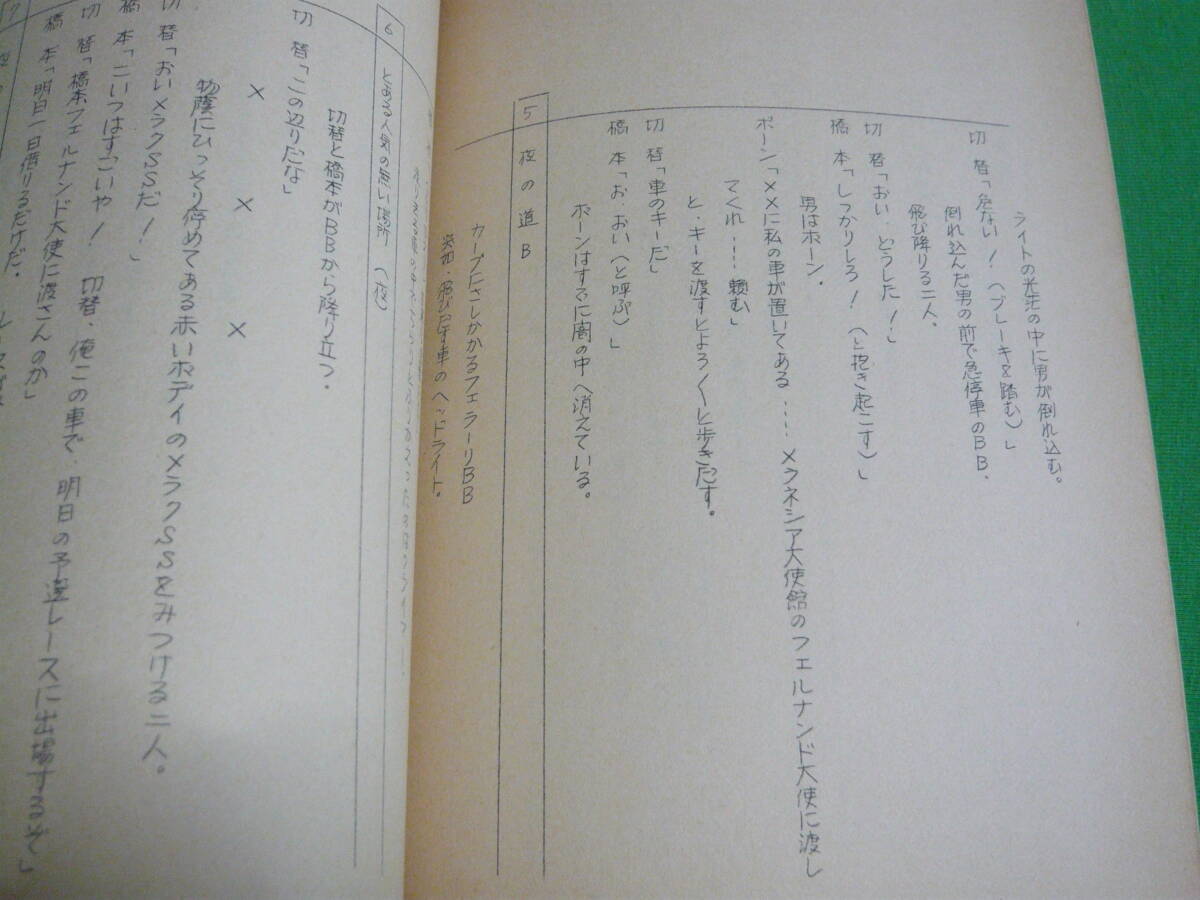 ライトの光芒の中に男が倒れ込む。
切替「危ない！（ブレーキを踏む）」
倒れ込んだ男の前で急停車のBB、
飛び降りる二人。
切替「おい、どうした！」
橋本「しっかりしろ！（と抱き起こす）」
男はボーン。
ボーン「××に私の車が置いてある……メラネシア大使館のフェルナンド大使に渡し
てくれ……頼む」
と、キーを渡すとよろ〱と歩きだす。
切替「車のキーだ」
橋本「お、おい（と呼ぶ）」
ボーンはすでに闇の中へ消えている。
5 夜の道 B
カーブにさしかかるフェラーリBB
突如、飛びだす車のヘッドライト。
6 とある人気の無い場所（夜）
切替と橋本がBBから降り立つ。
切替「この辺りだな」
× × ×
物蔭にひっそり停めてある赤いボディのメラクSSをみつける二人。
切替「おいメラクSSだ！」
橋本「こいつはすごいや！ 切替、俺この車で、明日の予選レースに出場するぞ」
切替「橋本、フェルナンド大使に渡さんのか」
橋本「明日一日借りるだけだ。
7